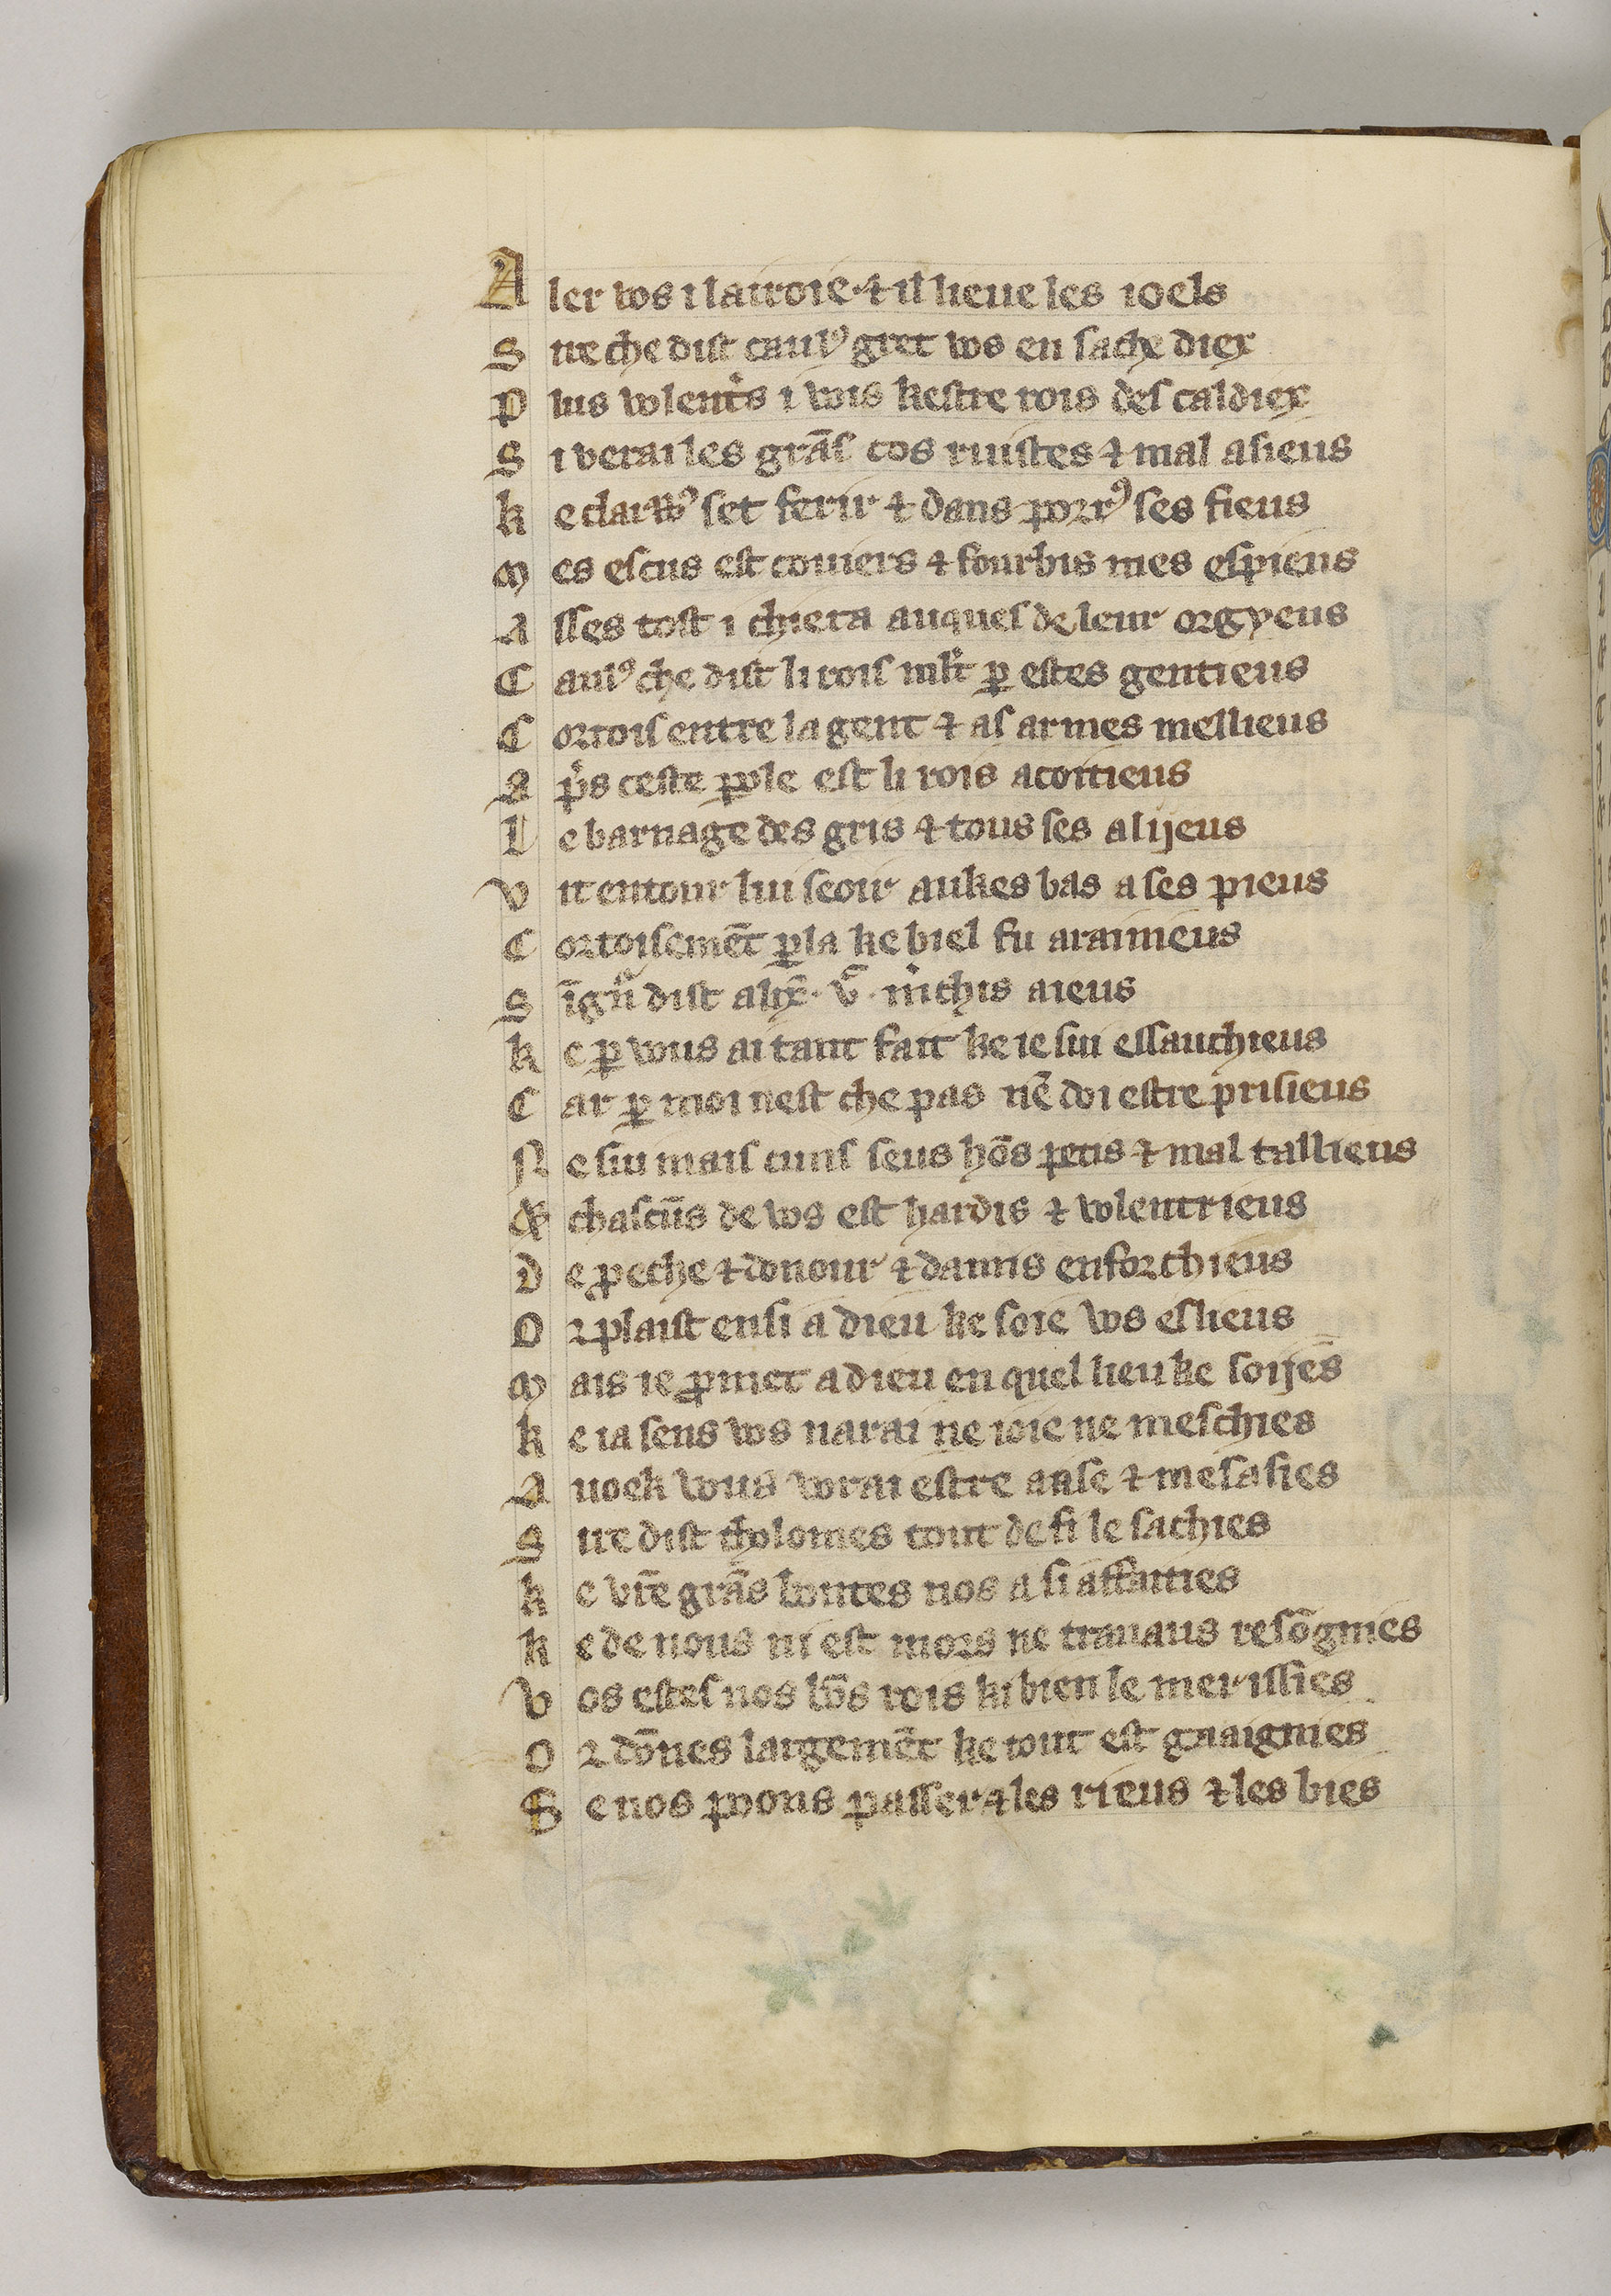 A ler vos i lairoie · ⁊ il lieue les ioels
S ire che dist caulꝰ gret vos en sache diex
P lus volentͥs i vois kestre rois des caldiex
S i verai les grās cos ruistes ⁊ mal asieus
k e clarꝰ set ferir ⁊ dans porrꝰ ses fieus
M es escus est couiers ⁊ fourbis mes espieus
A sses tost i chiera auques de leur orgyeus
C aulꝰ che dist li rois ml̃t ꝑ estes gentieus
C ortois entre la gent ⁊ as armes mellieus
A p̾s ceste ꝑole est li rois acoitieus
L e barnage des gris ⁊ tous ses alijeus
V it entour lui seoir aukes bas a ses pieus
C ortoisemēt ꝑla ke biel fu arainieus
S īgn̄ dist alix̄ · v̄ · m̾chis aieus
k e ꝑ vous ai tant fait ke ie sui essauchieus
C ar ꝑ moi nest che pas nē doi estre prisieus
N e sui mais cuns seus hōs petis ⁊ mal tallieus
⁊ chascūs de vos est hardis ⁊ volentrieus
D e ꝓeche ⁊ donour ⁊ damis enforchieus
O r plaist ensi a dieu ke soie vos eslieus
M ais ie ꝓmet a dieu en quel lieu ke soijēs
k e ia sens vos narai ne ioie ne meschies
A uoek vous vorai estre aaise ⁊ mesasies
S ire dist tholomes tout de fi le sachies
k e vr̄e grās bontes nos a si affaities
k e de nous ni est mors ne trauaus resōgnies
V os estes nos bōs rois ki bien le merissies
O r dōnes largemēt ke tout est gaaignies
S e nos poons passer ⁊ les rieus ⁊ les bies